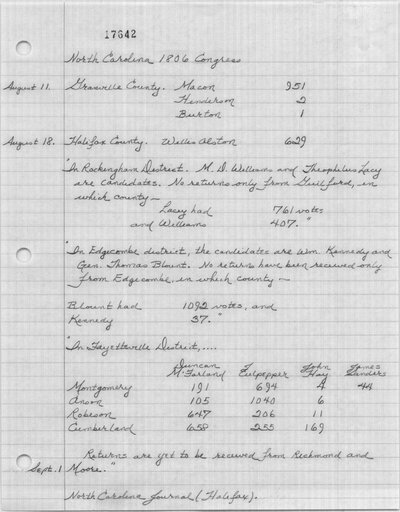 17642
North Carolina 1806 Congress
August 11. Granville County. Macon 951
Henderson 2
Burton 1
August 18. Halifax County. Willis Alston 629
"In Rockingham District. M. D. Williams and Theophilus Lacy
are candidates. No returns only from Guilford, in
which county—
Lacey had 761 votes
and Williams 407."
"In Edgecombe district, the candidates are Wm. Kennedy and
Gen. Thomas Blount. No returns have been received only
from Edgecombe, in which county—
Blount had 1092 votes, and
Kennedy 37."
"In Fayetteville District,....
Duncan J. John James
McFarland Culpepper Hay Sanders
Montgomery 191 694 4 44
Anson 105 1040 6
Robeson 647 206 11
Cumberland 658 255 169
Returns are yet to be received from Richmond and
Sept. 1 Moore."
North Carolina Journal (Halifax).